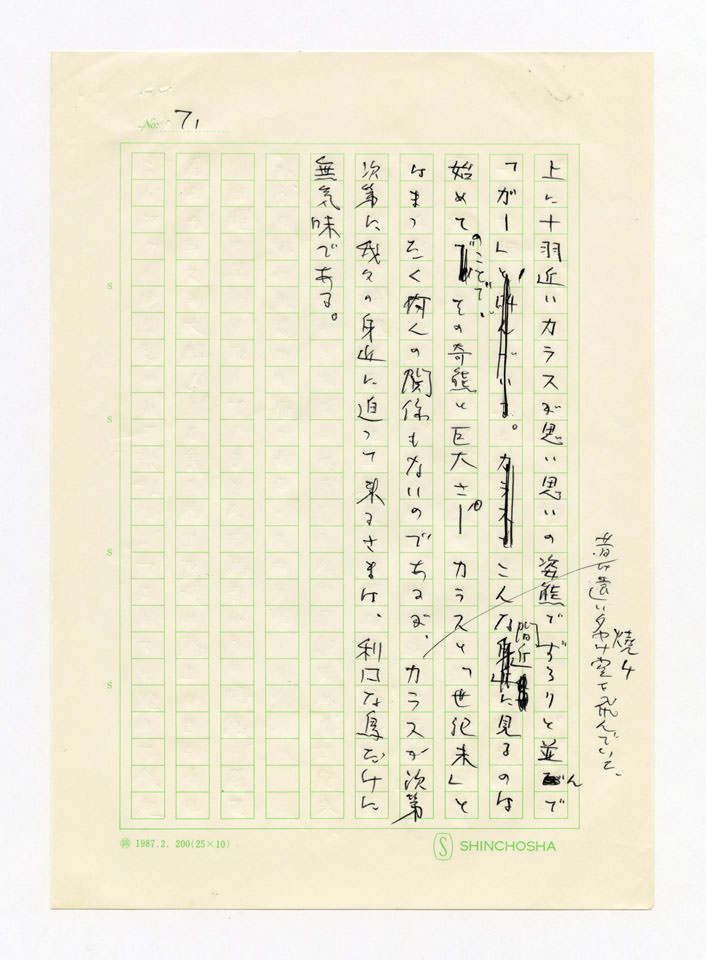 No. 71
上に十羽近いカラスが思い思いの姿態でずらりと並んで
「ガー」と叫んでいる。カラスをこんな間近に見るのは
始めてのことで、その奇態と巨大さ——カラスと「世紀末」と
はまったく何んの関係もないのであるが、カラスが次第
次第に我々の身近に迫って来るさまは、利口な鳥だけに
無気味である。
昔は遠い夕やけ空を飛んでいて、
焼け
S
S
S
S
1987.2. 200(25×10)
S SHINCHOSHA